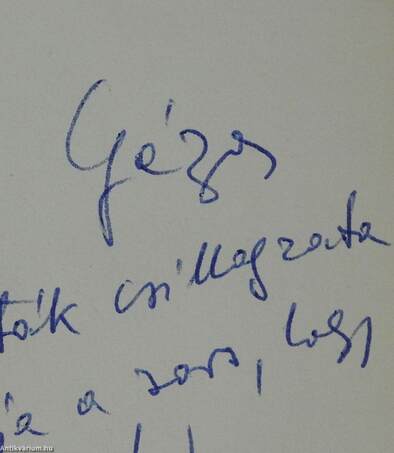 Géza
ták csillagzata
ja a sors, hogy
Antikvárium.hu